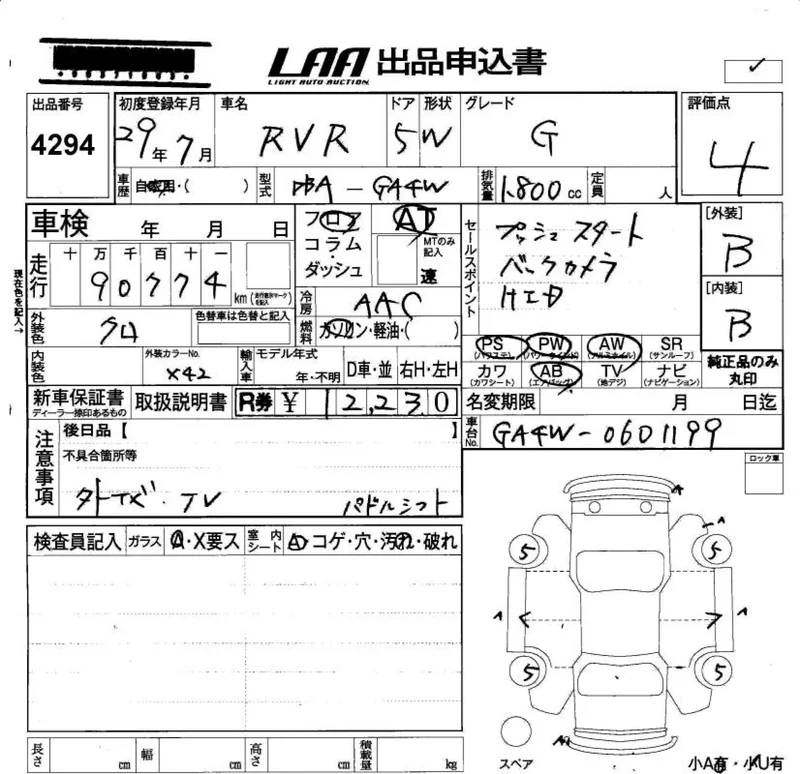 LAA 出品申込書
LIGHT AUTO AUCTION
出品番号 4294
初度登録年月 29年7月
車名 RVR
ドア 5 形状 W
グレード G
評価点 4
車歴 自家用・( )
型式 DBA-GA4W
排気量 1.800cc
定員 人
車検 年 月 日
フロア
コラム
ダッシュ
AT
MTのみ記入
速
セールスポイント
プッシュスタート
バックカメラ
HID
[外装] B
[内装] B
純正品のみ丸印
現在色を記入→
走行 十万千百十一
90774 km
冷房 AAC
外装色 クロ
色替車は色替と記入
燃料 ガソリン・軽油・( )
PS (パワステ) PW (パワーウインド) AW (アルミホイル) SR (サンルーフ)
カワ (カワシート) AB (エアバッグ) TV (地デジ) ナビ (ナビゲーション)
内装色
外装カラーNo. X42
輸入車 モデル年式 年・不明 D車・並 右H・左H
新車保証書 ディーラー捺印あるもの
取扱説明書
R券 ¥ 12,230
名変期限 月 日迄
車台No. GA4W-0601199
注意事項
後日品【 】
不具合箇所等
TV パドルシフト
ロック車
検査員記入 ガラス A・X要ス 室内シート A・コゲ・穴・汚れ・破れ
A
A
5 5
A A
5 5
スペア
小A有・小U有
長さ cm 幅 cm 高さ cm 積載量 kg